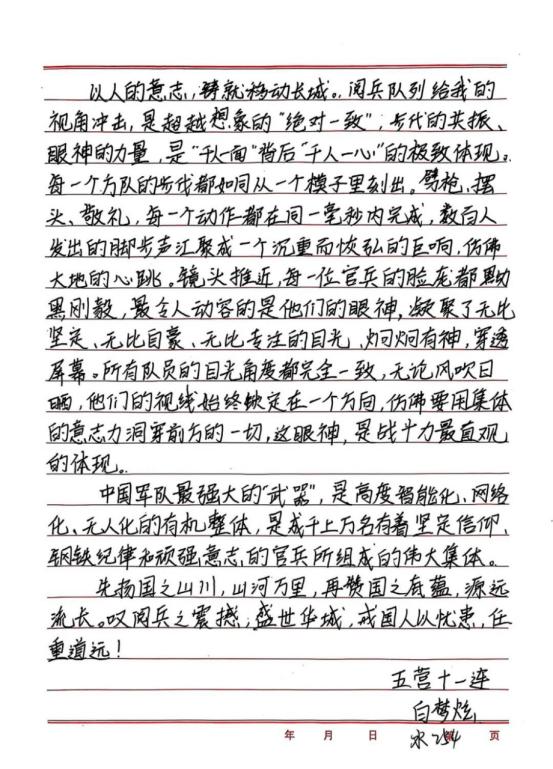 以人的意志,铸就移动长城。阅兵队列给我的
视角冲击,是超越想象的“绝对一致”;步伐的共振、
眼神的力量,是“千人一面”背后“千人一心”的极致体现。
每一个方队的步伐都如同从一个模子里刻出。劈枪、摆
头、敬礼,每一个动作都在同一毫秒内完成,数百人
发出的脚步声汇聚成一个沉重而恢弘的巨响,仿佛
大地的心跳。镜头推近,每一位官兵的脸庞都黝
黑刚毅,最令人动容的是他们的眼神,凝聚了无比
坚定、无比自豪、无比专注的目光,炯炯有神,穿透
屏幕。所有队员的目光角度都完全一致,无论风吹日
晒,他们的视线始终锁定在一个方向,仿佛要用集体
的意志力洞穿前方的一切,这眼神,是战斗力最直观
的体现。
中国军队最强大的“武器”,是高度智能化、网络
化、无人化的有机整体,是成千上万名有着坚定信仰、
钢铁纪律和顽强意志的官兵所组成的伟大集体。
先扬国之山川,山河万里,再赞国之底蕴,源远
流长。叹阅兵之震撼,盛世华城,戒国人以忧患,任
重道远!
五营十一连
白梦炫
水254
年 月 日 页